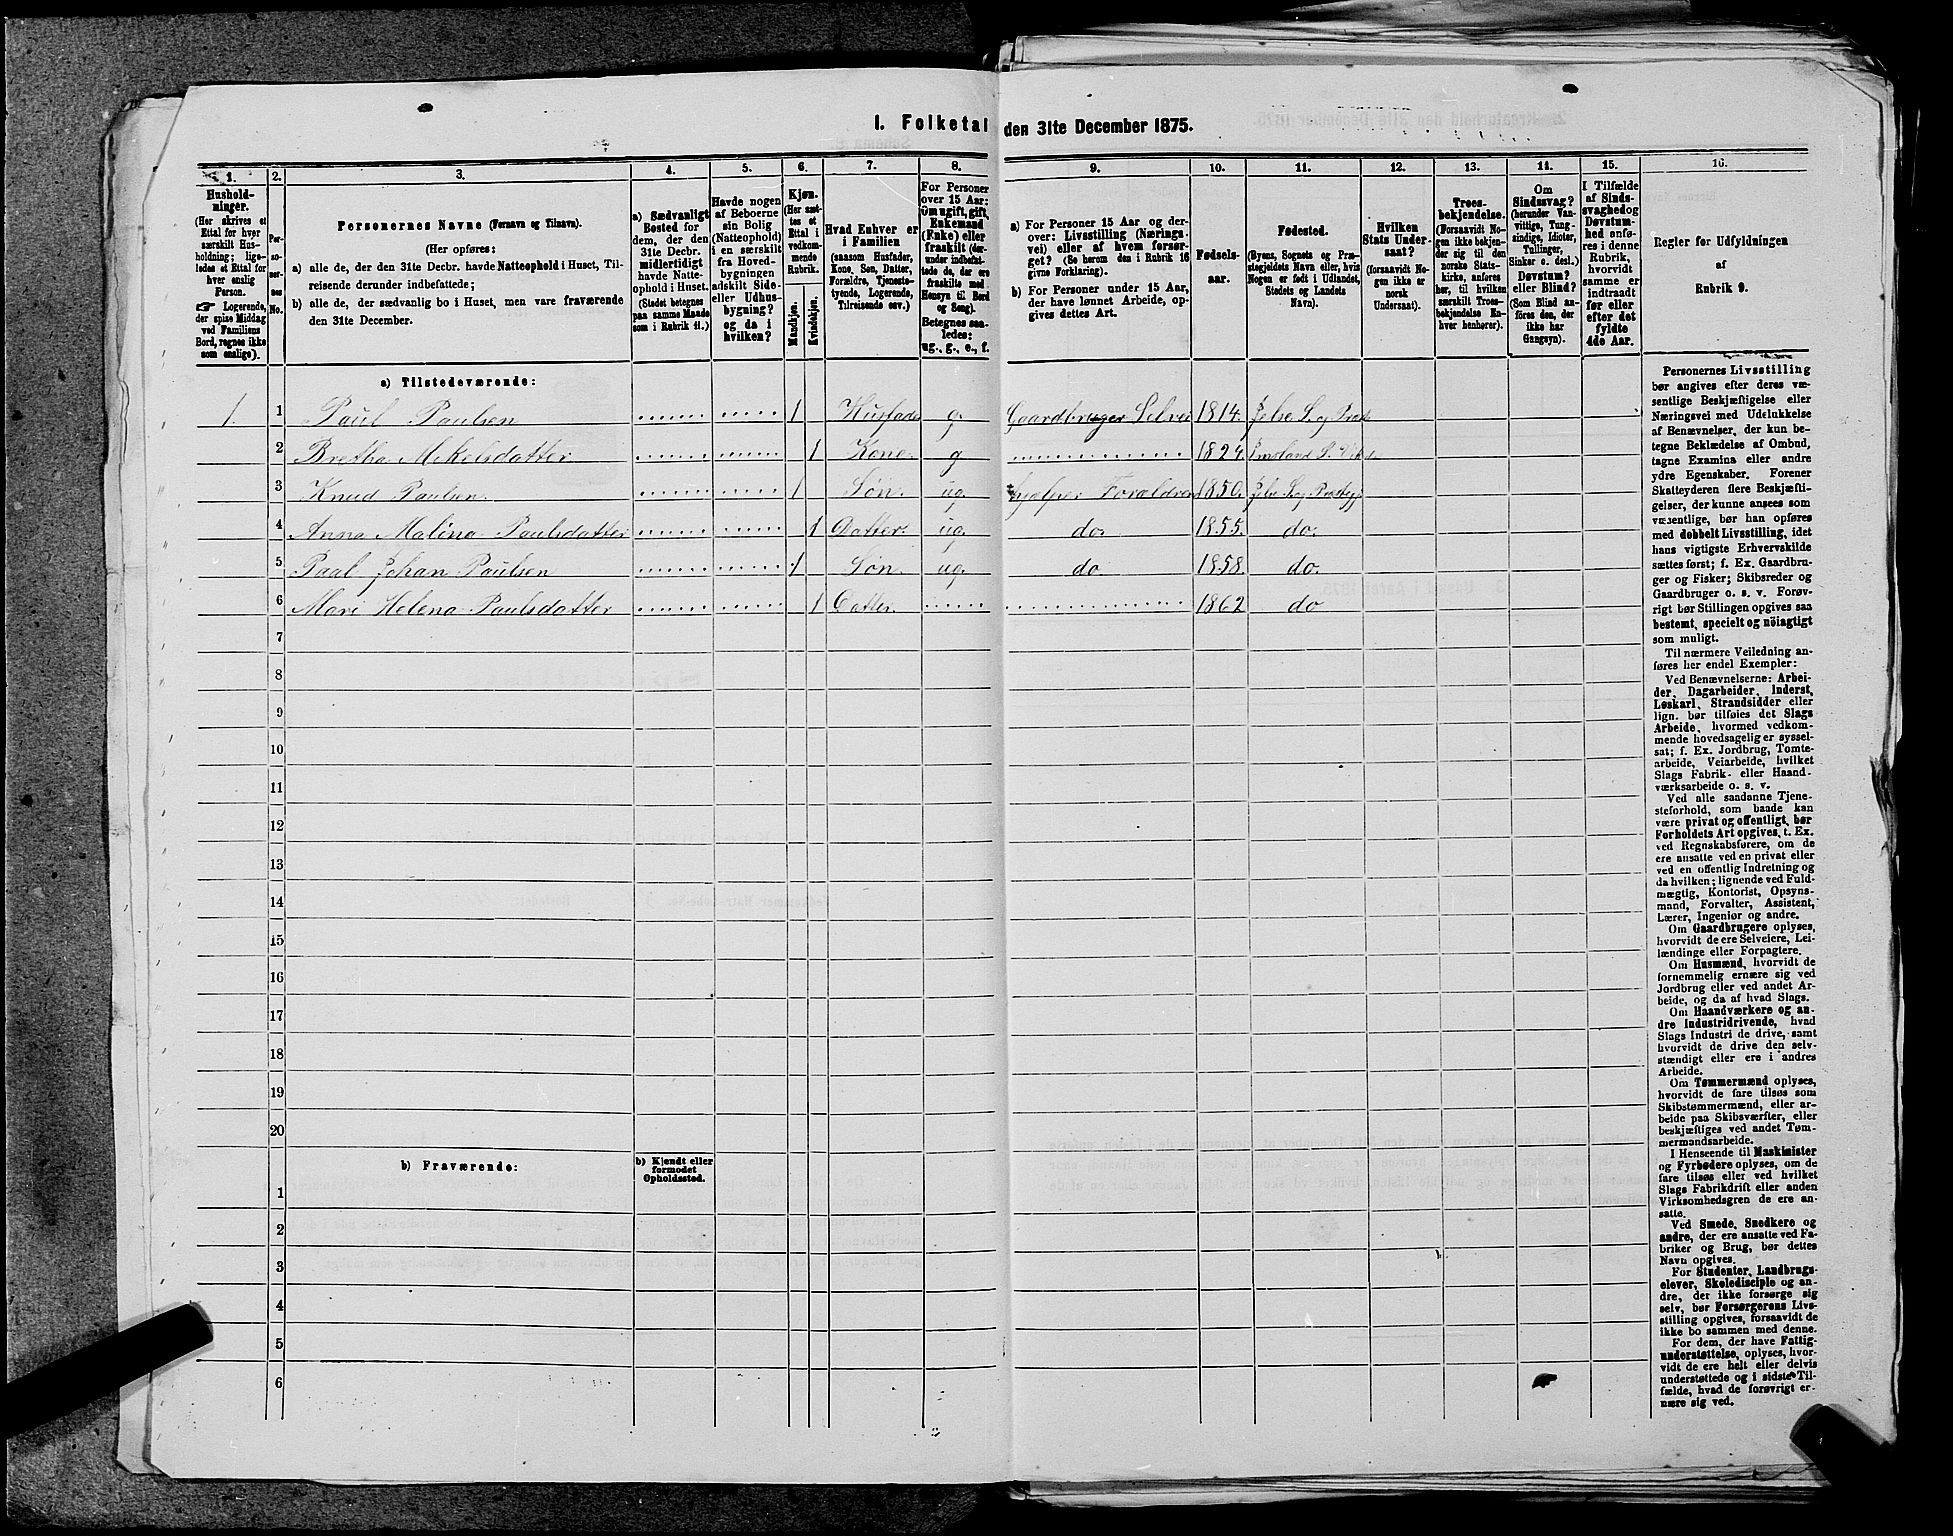 I. Folketal den 31te December 1875.
1. 2. 3. 4. 5. 6. 7. 8. 9. 10. 11. 12. 13. 14. 15. 16.
Hushold-
ninger.
(Her skrives et
Ettal for hver
særskilt Hus-
holdning; lige-
ledes et Ettal for
hver enslig
Person.
☞ Logerende,
der spise Middag
ved Familiens
Bord, regnes ikke
som enslige).
Per-
so-
ner-
nes
No.
Personernes Navne (Fornavn og Tilnavn).
(Her opføres:
a) alle de, der den 31te Decbr. havde Natteophold i Huset, Til-
reisende derunder indbefattede;
b) alle de, der sædvanlig bo i Huset, men vare fraværende
den 31te December.
a) Sædvanligt
Bosted for
dem, der den
31te Decbr.
midlertidigt
havde Natte-
ophold i Huset.
(Stedet betegnes
paa samme Maade
som i Rubrik 11.)
Havde nogen
af Beboerne
sin Bolig
(Natteophold)
i en særskilt
fra Hoved-
bygningen
adskilt Side-
eller Udhus-
bygning?
og da i
hvilken?
Kjøn.
(Her sæt-
tes et
Ettal i
vedkom-
mende
Rubrik.
Mandkjøn.
Kvindekjøn.
Hvad Enhver er
i Familien
(saasom Husfader,
Kone, Søn, Datter,
Forældre, Tjeneste-
tyende, Logerende,
Tilreisende osv.)
For Personer
over 15 Aar:
Om ugift, gift,
Enkemand
(Enke) eller
fraskilt (der-
under indbefat-
tede de, der ere
fraskilte med
Hensyn til Bord
og Seng).
Betegnes saa-
ledes:
ug., g., e., f.
a) For Personer 15 Aar og der-
over: Livsstilling (Nærings-
vei) eller af hvem forsør-
get? (Se herom den i Rubrik 16
givne Forklaring).
b) For Personer under 15 Aar,
der have lønnet Arbeide, op-
gives dettes Art.
Fødsels-
aar.
Fødested.
(Byens, Sognets og Præ-
stegjeldets Navn eller, hvis
Nogen er født i Udlandet,
Stedets og Landets
Navn).
Hvilken
Stats Under-
saat?
(forsaavidt No-
gen ikke er
norsk
Undersaat).
Troes-
bekjendelse.
(Forsaavidt No-
gen ikke bekjen-
der sig til den
norske Stats-
kirke, anføres
her, til hvilken
særskilt Troes-
bekjendelse En-
hver henhører).
Om
Sindssvag?
(herunder Van-
vittige, Tung-
sindige, Idioter,
Tullinger,
Sinker o. desl.)
Døvstum?
eller Blind?
(Som Blind an-
føres den, der
ikke har
Gangsyn).
I Tilfælde
af Sinds-
svaghed og
Døvstum-
hed anfø-
res i denne
Rubrik,
hvorvidt
samme er
indtraadt
før eller
efter det
fyldte
4de Aar.
Regler for Udfyldningen
af
Rubrik 9.
a) Tilstedeværende:
1. 1 Paul Paulsen 1 Husfader g. Gaardbruger Selvei 1814. Jelse S. og Præst
2 Bretha Mikelsdatter 1 Kone g 1824. Imsland S.
3 Knud Paulsen 1 Søn. ug. hjælper Forældren 1850. Jelse S. og Prestegj
4 Anna Malina Paulsdatter 1 Datter. ug. do. 1855. do.
5 Paal Johan Paulsen 1 Søn ug. do 1858. do.
6 Mari Helena Paulsdatter 1 Datter. 1862 do
7
8
9
10
11
12
13
14
15
16
17
18
19
20
b) Fraværende:
b) Kjendt eller
formodet
Opholdssted.
1
2
3
4
5
6
Personernes Livsstilling
bør angives efter deres væ-
sentlige Beskjæftigelse eller
Næringsvei med Udelukkelse
af Benævnelser, der kun be-
tegne Beklædelse af Ombud,
tagne Examina eller andre
ydre Egenskaber. Forener
Skatteyderen flere Beskjæfti-
gelser, der kunne ansees som
væsentlige, bør han opføres
med dobbelt Livsstilling, idet
hans vigtigste Erhvervskilde
sættes først; f. Ex. Gaardbru-
ger og Fisker; Skibsreder og
Gaardbruger o. s. v. Forøv-
rigt bør Stillingen opgives saa
bestemt, specielt og nöiagtigt
som muligt.
Til nærmere Veiledning an-
føres her endel Exempler:
Ved Benævnelserne: Arbei-
der, Dagarbeider, Inderst,
Løskarl, Strandsidder eller
lign. bør tilføies det Slags
Arbeide, hvormed vedkom-
mende hovedsagelig er syssel-
sat; f. Ex. Jordbrug, Tomte-
arbeide, Veiarbeide, hvilket
Slags Fabrik- eller Haand-
værksarbeide o. s. v.
Ved alle saadanne Tjene-
steforhold, som baade kan
være privat og offentligt, bør
Forholdets Art opgives, t. Ex.
ved Regnskabsførere, om de
ere ansatte ved en privat eller
ved en offentlig Indretning og
da hvilken; lignende ved Fuld-
mægtig, Kontorist, Opsyns-
mand, Forvalter, Assistent,
Lærer, Ingeniør og andre.
Om Gaardbrugere oplyses,
hvorvidt de ere Selveiere, Lei-
lændinge eller Forpagtere.
Om Husmænd, hvorvidt de
fornemmelig ernære sig ved
Jordbrug eller ved andet Ar-
beide, og da af hvad Slags.
Om Haandværkere og an-
dre Industridrivende, hvad
Slags Industri de drive, samt
hvorvidt de drive den selv-
stændigt eller ere i andres
Arbeide.
Om Tømmermænd oplyses,
hvorvidt de fare tilsøs som
Skibstømmermænd, eller ar-
beide paa Skibsværfter, eller
beskjæftiges ved andet Tøm-
mermandsarbeide.
I Henseende til Maskinister
og Fyrbødere oplyses, om de
fare tilsøs eller ved hvilket
Slags Fabrikdrift eller anden
Virksomhedsgren de ere an-
satte.
Ved Smede, Snedkere og
andre, der ere ansatte ved Fa-
briker og Brug, bør dettes
Navn opgives.
For Studenter, Landbrugs-
elever, Skoledisciple og an-
dre, der ikke forsørge sig
selv, bør Forsørgerens Livs-
stilling opgives, forsaavidt de
ikke bo sammen med denne.
For dem, der have Fattig-
understøttelse, oplyses, hvor-
vidt de ere helt eller delvis
understøttede og i sidste Til-
fælde, hvad de forøvrigt er-
nære sig ved.